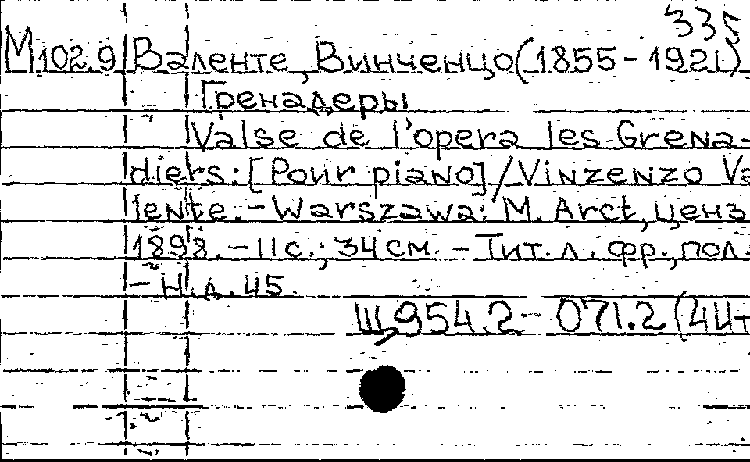 335
М102.9 Валенте, Винченцо (1855-1921)
Гренадеры
Valse de l'opera les Grena-
diers: [Pour piano] / Vinzenzo Va
lente. - Warszawa: M. Arct, ценз
1898. - 11 с.; 34 см. - Тит. л. фр., пол.
- Н. д. 45.
Щ954.2-071.2(4Ит